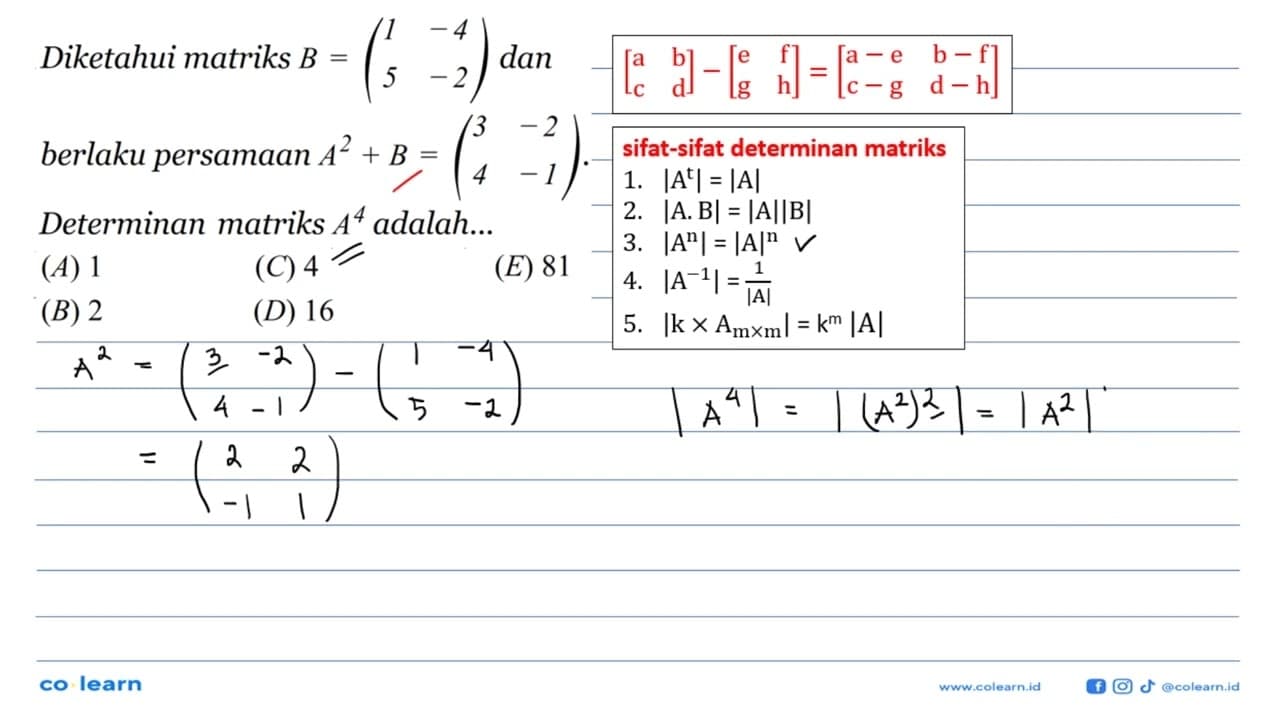 Diketahui matriks B = (1 -4
5 -2) dan
berlaku persamaan A² + B = (3 -2
4 -1).
Determinan matriks A⁴ adalah...
(A) 1 (C) 4 (E) 81
(B) 2 (D) 16
[a b
c d] − [e f
g h] = [a − e b − f
c − g d − h]
sifat-sifat determinan matriks
1. |Aᵗ| = |A|
2. |A. B| = |A||B|
3. |Aⁿ| = |A|ⁿ ✓
4. |A⁻¹| = 1/|A|
5. |k × Aₘ×ₘ| = kᵐ |A|
A² = (3 -2
4 -1) − (1 -4
5 -2)
= (2 2
-1 1)
|A⁴| = |(A²)²| = |A²|
co learn
www.colearn.id
@colearn.id